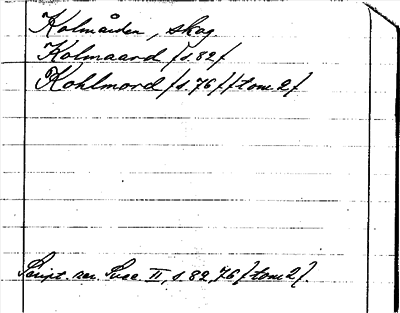 Kolmården, skog
Kolmaard /s. 82/
Kohlmord /s. 76/ /tom 2/
Script. rer. Svec. II, s. 82, 76 /tom 2/.